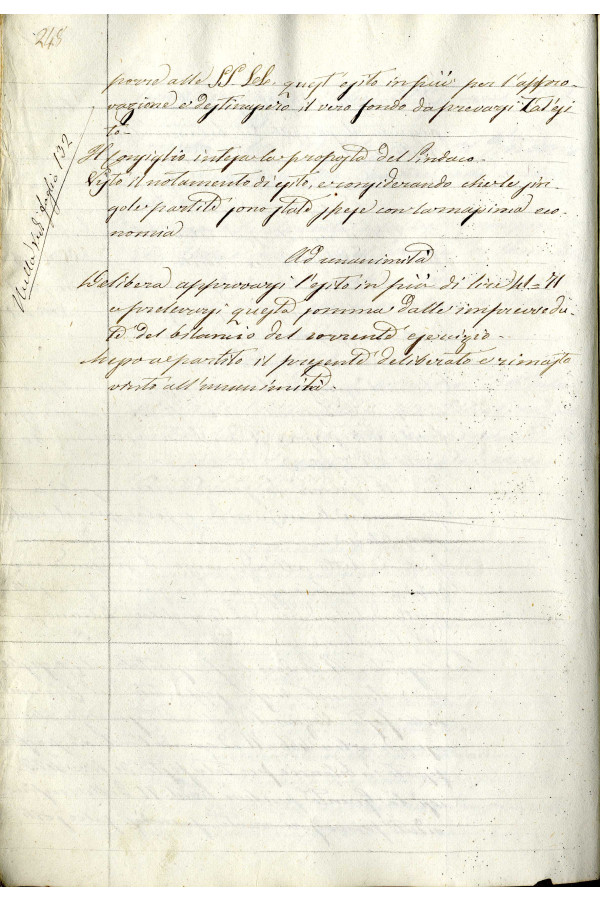 248
porre alle SS. LL. quest'esito in più per l'appro-
vazione e destinarsi il vero fondo da prevarsi tal'esi
to-
Il Consiglio intesa la proposta del Sindaco.
Visto il notamento di esito, e considerando che le sin
gole partite sono state spese con la massima eco-
nomia
Ad unanimità
Delibera approvarsi l'esito in più di lire 41=71
e prelevarsi questa somma dalle imprevedu-
te del bilancio del corrente esercizio.
Messo a partito il presente deliberato è rimasto
vinto all'unanimità.
foglio 132